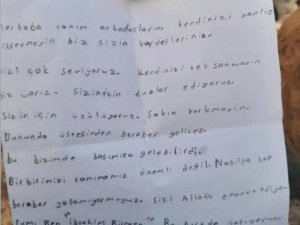 Merhaba canım arkadaşlarım kendinizi yanlız
hissetmeyin biz sizin kardeşleriniz.
sizi çok seviyoruz. kendinizi tek sanmayın
biz varız. Sizin için dualar ediyoruz.
Sizin için üzülüyoruz. Sakın korkmayın.
Bununda üstesinden beraber gelicez.
bu bizimde başımıza gelebilirdi.
Birbirimizi tanımamız önemli değil. Nasılsa hep
beraber yaşamıyormuyuz. sizi Allaha emanet ediyo-
rum. Ben İbrahim